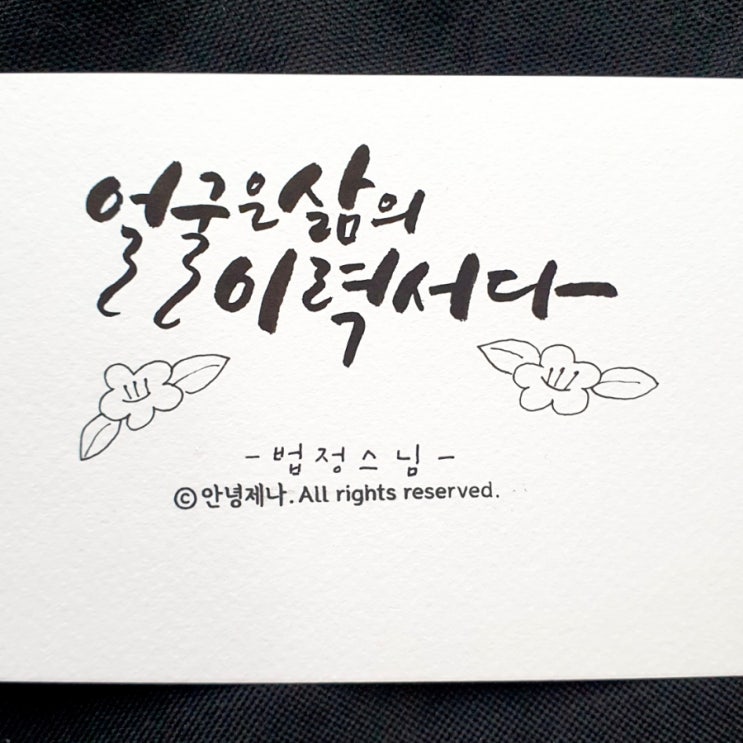 얼굴은 삶의
이력서다
- 법정스님 -
ⓒ안녕제나. All rights reserved.